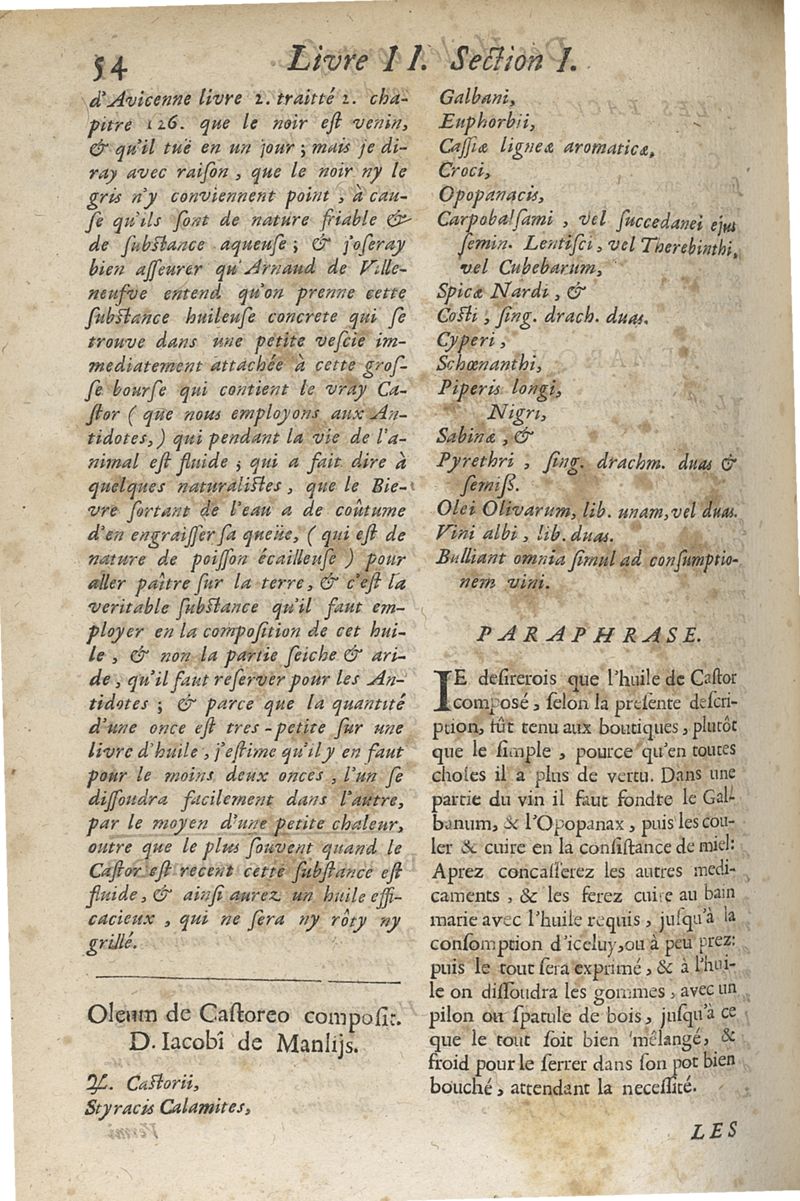 54 Livre II. Section I.
d'Avicenne livre 2. traitté 2. cha-
pitre 126. que le noir eſt venin,
& qu'il tuë en un jour ; mais je di-
ray avec raiſon , que le noir ny le
gris n'y conviennent point , à cau-
ſe qu'ils ſont de nature friable &
de ſubſtance aqueuſe ; & j'oſeray
bien aſſeurer qu'Arnaud de Ville-
neufve entend qu'on prenne cette
ſubſtance huileuſe concrete qui ſe
trouve dans une petite veſcie im-
mediatement attachée à cette groſ-
ſe bourſe qui contient le vray Ca-
ſtor ( que nous employons aux An-
tidotes, ) qui pendant la vie de l'a-
nimal eſt fluide ; qui a fait dire à
quelques naturaliſtes , que le Bie-
vre ſortant de l'eau a de coûtume
d'en engraiſſer ſa queüe, ( qui eſt de
nature de poiſſon écailleuſe ) pour
aller paître ſur la terre, & c'eſt la
veritable ſubſtance qu'il faut em-
ployer en la compoſition de cet hui-
le , & non la partie ſeiche & ari-
de , qu'il faut reſerver pour les An-
tidotes ; & parce que la quantité
d'une once eſt tres-petite ſur une
livre d'huile , j'eſtime qu'il y en faut
pour le moins deux onces , l'un ſe
diſſoudra facilement dans l'autre,
par le moyen d'une petite chaleur,
outre que le plus ſouvent quand le
Caſtor eſt recent cette ſubſtance eſt
fluide, & ainſi aurez un huile effi-
cacieux , qui ne ſera ny rôty ny
grillé.
Oleum de Caſtoreo compoſit.
D. Iacobi de Manlijs.
♃. Caſtorii,
Styracis Calamites,
Galbani,
Euphorbii,
Caſſiæ ligneæ aromaticæ,
Croci,
Opopanacis,
Carpobalſami , vel ſuccedanei ejus
ſemin. Lentiſci, vel Therebinthi,
vel Cubebarum,
Spicæ Nardi , &
Coſti , ſing. drach. duas.
Cyperi ,
Schœnanthi,
Piperis longi,
Nigri,
Sabinæ , &
Pyrethri , ſing. drachm. duas &
ſemiß.
Olei Olivarum, lib. unam, vel duas.
Vini albi , lib. duas.
Bulliant omnia ſimul ad conſumptio-
nem vini.
PARAPHRASE.
IE deſirerois que l'huile de Caſtor
compoſé , ſelon la preſente deſcri-
ption, fût tenu aux boutiques , plutôt
que le ſimple , pource qu'en toutes
choſes il a plus de vertu. Dans une
partie du vin il faut fondre le Gal-
banum, & l'Opopanax , puis les cou-
ler & cuire en la conſiſtance de miel:
Aprez concaſſerez les autres medi-
caments , & les ferez cuire au bain
marie avec l'huile requis , juſqu'à la
conſomption d'iceluy, ou à peu prez:
puis le tout ſera exprimé , & à l'hui-
le on diſſoudra les gommes , avec un
pilon ou ſpatule de bois , juſqu'à ce
que le tout ſoit bien mêlangé, &
froid pour le ſerrer dans ſon pot bien
bouché , attendant la neceſſité.
LES